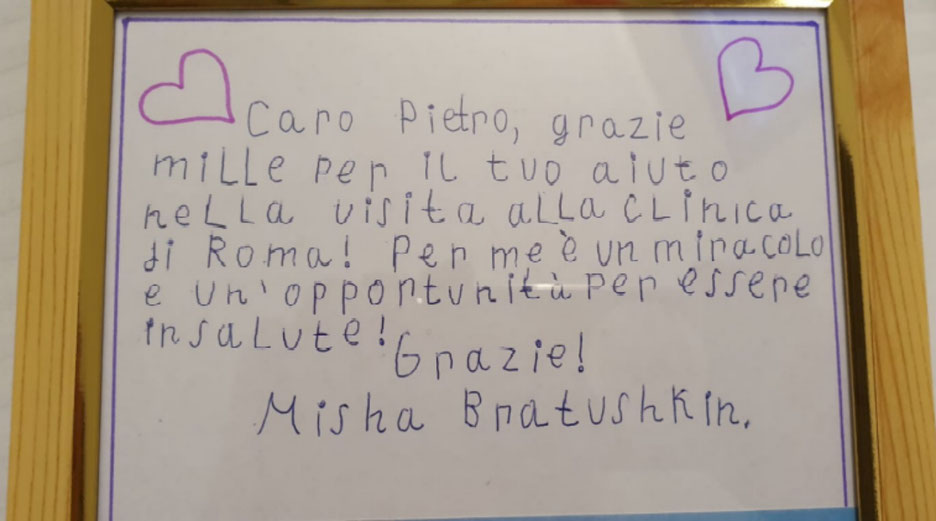 Caro Pietro, grazie
mille per il tuo aiuto
nella visita alla clinica
di Roma! Per me è un miracolo
e un'opportunità per essere
in salute!
Grazie!
Misha Bratushkin.